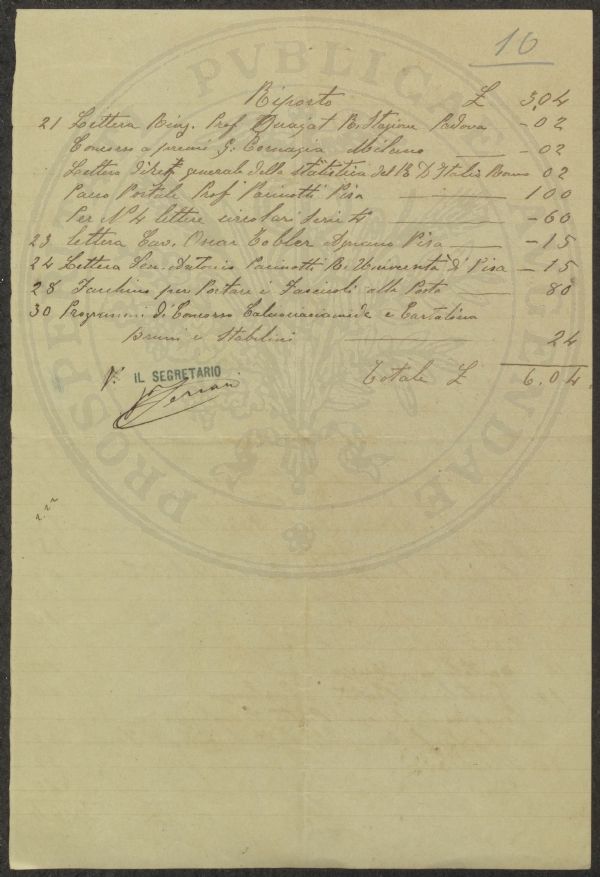 10
Riporto £ 3,04
21 Lettera Ring. Prof Quajat R. Stazione Padova - 02
Concorso a premi G. Cornagia Milano - 02
Lettera Dirett generale della Statistica del R. D'Italia Roma 02
Pacco Postale Prof Pacinotti Pisa 1 00
Per N° 4 lettere circolari - 60
23 lettera Cav. Oscar Tobler Pisa - 15
24 Lettera Sen. Antonio Pacinotti R. Università di Pisa - 15
28 Facchino per Portare i Fascicoli alla Posta 80
30 Programmi di Concorso e Cartolina
Bruni e Stabilini 24
V. IL SEGRETARIO Totale £ 6,04
PVBLICAE
PROSPE
GENDAE